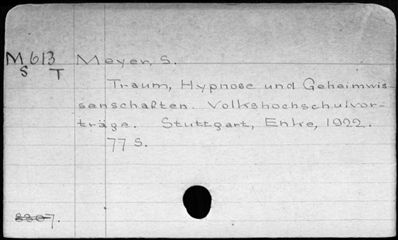 M 613 Meyer, S.
S T
Traum, Hypnose und Geheimwis-
senschaften. Volkshochschulvor-
träge. Stuttgart, Enke, 1922.
77 S.